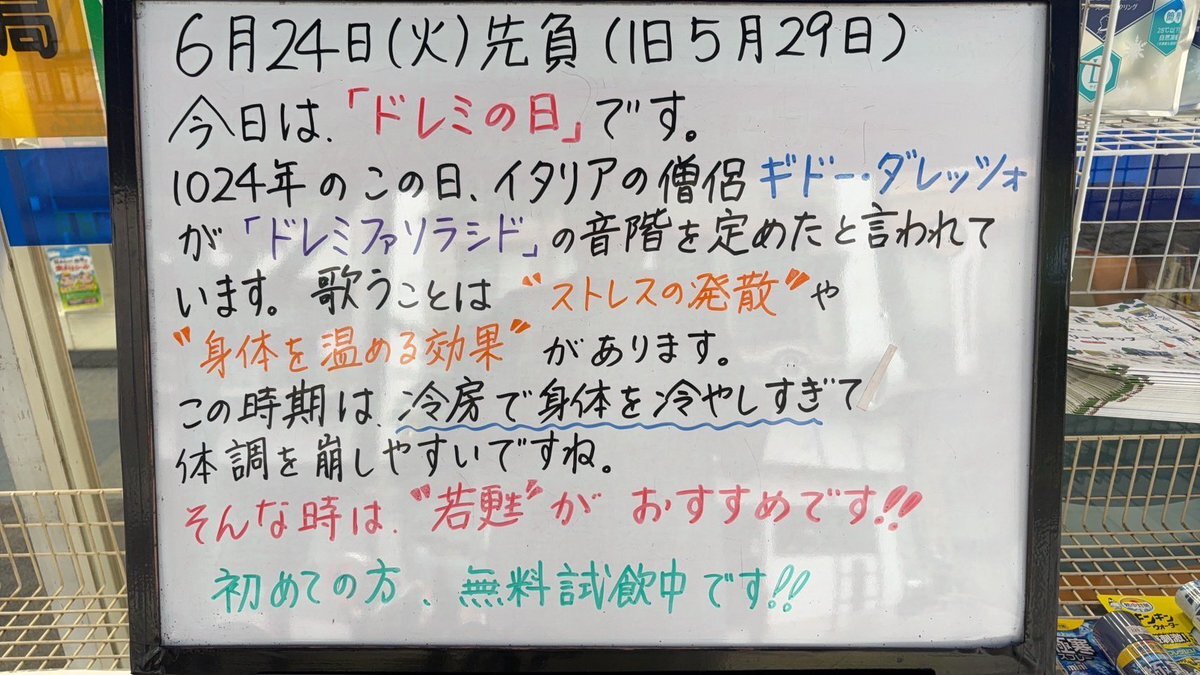 6月24日(火)先負(旧5月29日)
今日は、「ドレミの日」です。
1024年のこの日、イタリアの僧侶ギドー・ダレッツォ
が「ドレミファソラシド」の音階を定めたと言われて
います。歌うことは"ストレスの発散"や
"身体を温める効果"があります。
この時期は、冷房で身体を冷やしすぎて
体調を崩しやすいですね。
そんな時は、"若甦"がおすすめです!!
初めての方、無料試飲中です!!
局